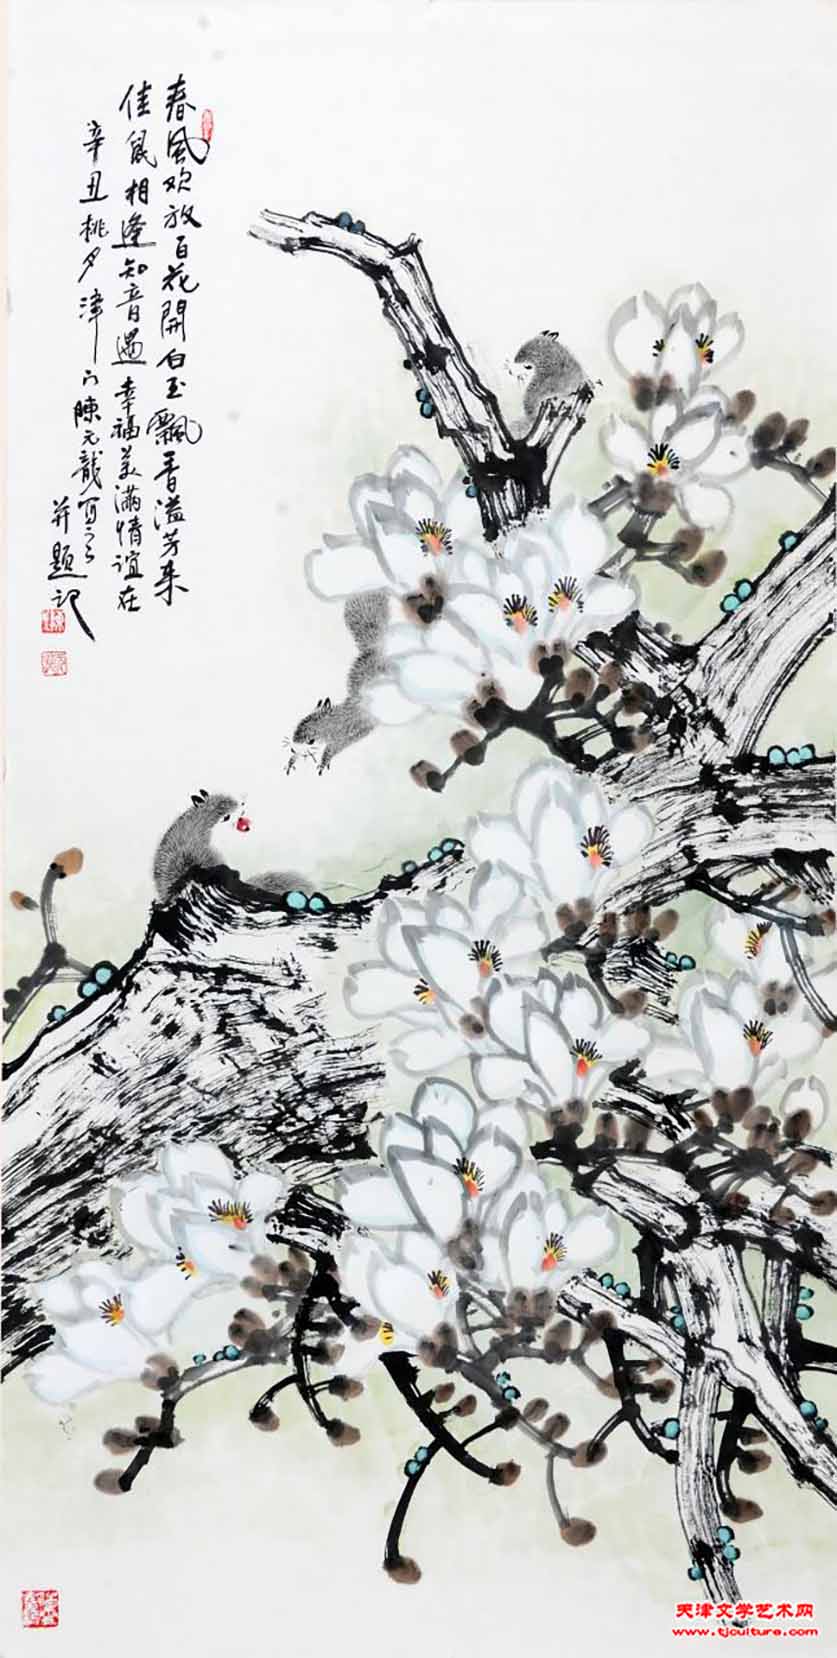 春風欢放百花開白玉飄香溢芳来
佳鼠相逢知音遇幸福美满情谊在
辛丑桃月津门陳元龍写之
并題记
天津文学艺术网
www.tjculture.com